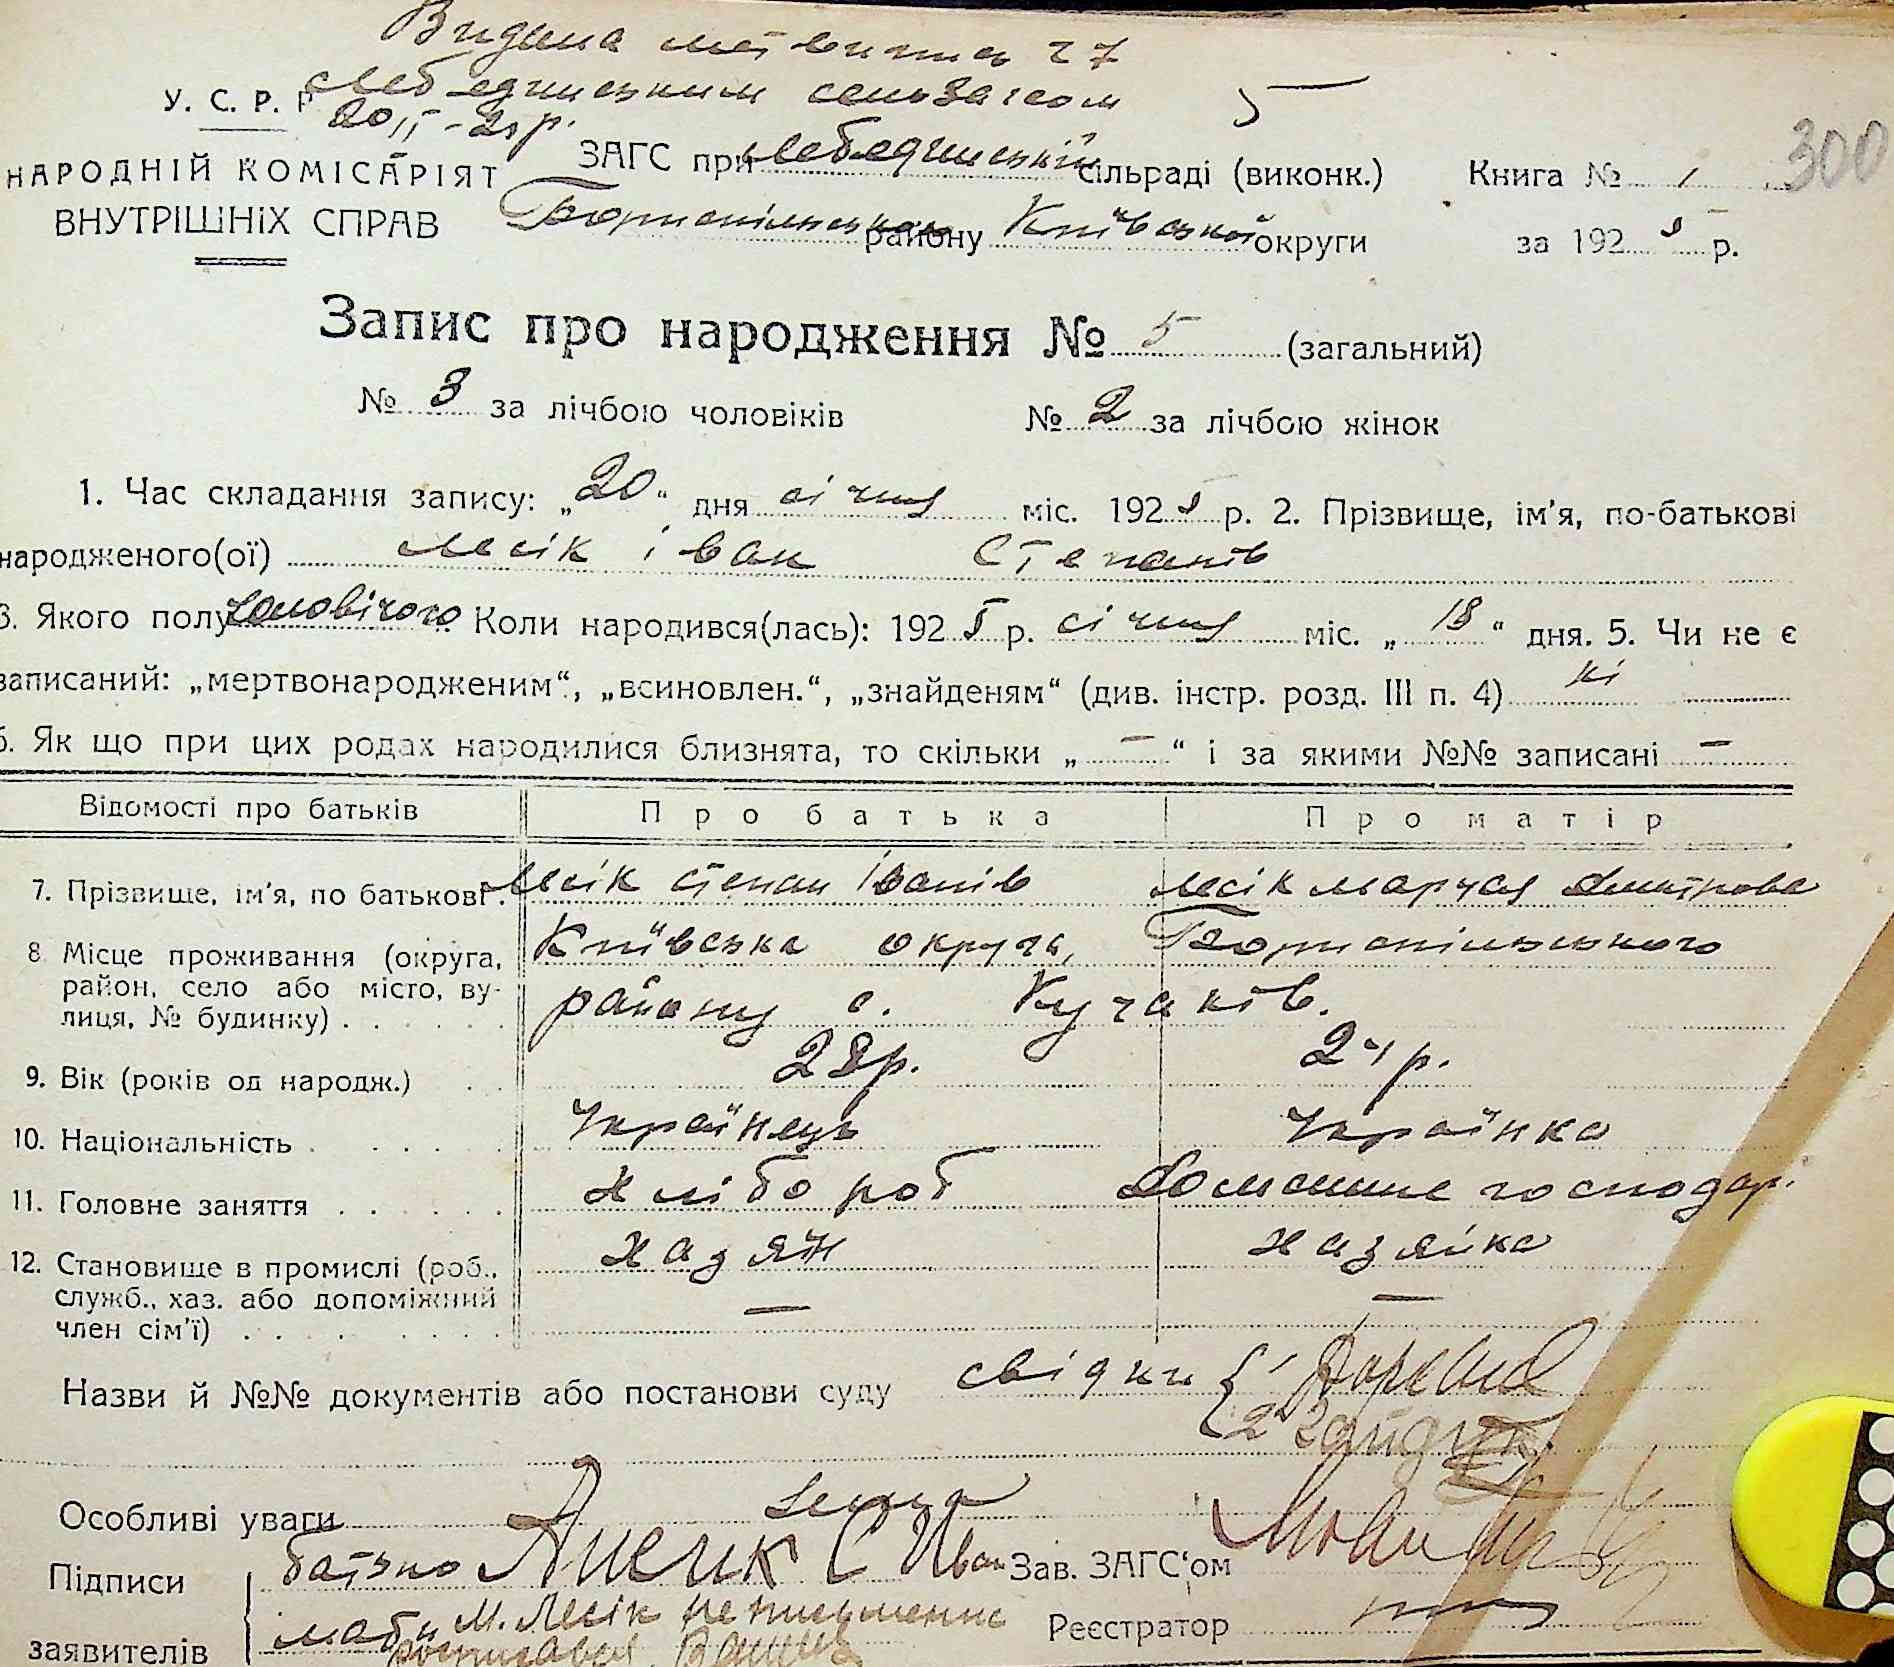 Видана метвитка 27
Лебединським сельзагсом
У. С. Р. Р.
5
НАРОДНІЙ КОМІСАРІЯТ
ВНУТРІШНІХ СПРАВ
ЗАГС при Лебединській сільраді (виконк.)
Бориспільського району Київської округи
Книга № 1
300
за 1925 р.
Запис про народження № 5 (загальний)
№ 3 за лічбою чоловіків № 2 за лічбою жінок
1. Час складання запису: „20“ дня січня міс. 1925 р. 2. Прізвище, ім'я, по-батькові
народженого(ої) Лесік Іван Степанів
3. Якого полу чоловічого Коли народився(лась): 1925 р. січня міс. „18“ дня. 5. Чи не є
записаний: „мертвонародженим“, „всиновлен.“, „знайденям“ (див. інстр. розд. III п. 4) ні
6. Як що при цих родах народилися близнята, то скільки „—“ і за якими №№ записані —
Відомості про батьків Про батька Про матір
7. Прізвище, ім'я, по батькові Лесік Степан Іванів Лесік Марчая Дмитрова
8 Місце проживання (округа, Київська округа, Бориспільського
район, село або місто, ву- району с. Кучаків.
лиця, № будинку)
9. Вік (років од народж.) 28р. 24р.
10. Національність Українець Українка
11. Головне заняття Хлібороб Домашнє господар.
12. Становище в промислі (роб., хазяїн хазяйка
служб., хаз. або допоміжний — —
член сім'ї)
Назви й №№ документів або постанови суду свідки { 1
2 Зайдук
Особливі уваги
Підписи батько С Иван Зав. ЗАГС'ом
заявителів мати М. Лесік неписьменна Реєстратор
росписався